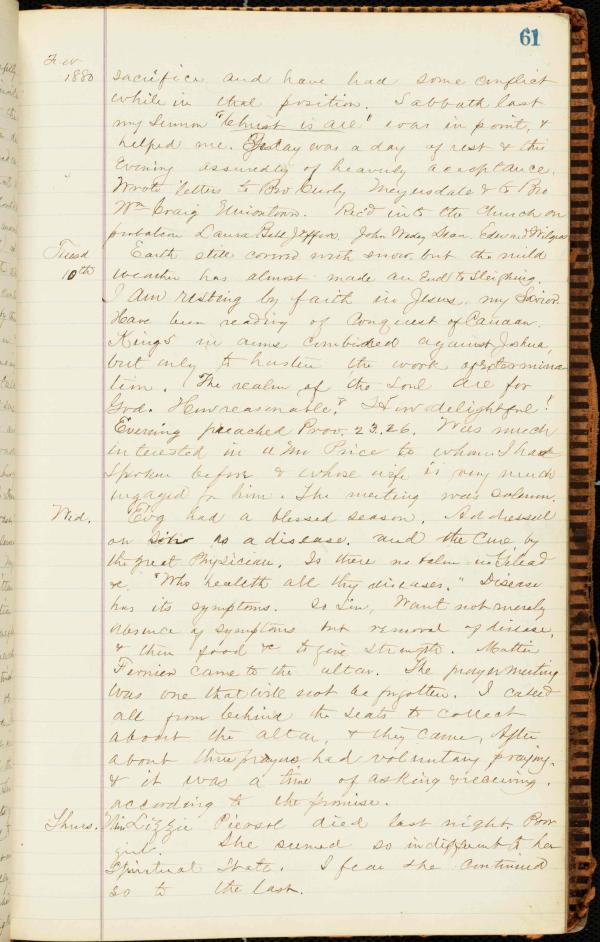 61
Feb
1880 sacrifice and have had some conflict
while in that position. Sabbath last
my Sermon "Christ is all" was in point, &
helped me. was a day of rest & this
Evening assuredly of heavenly acceptance.
Wrote letters to Bro Curly Meyersdale & to Bro
Wm Craig Uniontown. Rec'd into the Church on
probation Laura Bell John Dean.
Tuesd Earth still covered with snow, but the mild
10th weather has almost made an End to Sleighing.
I am resting by faith in Jesus, my Savior.
Have been reading of Conquest of Canaan.
Kings in arms combined against Joshua,
but only to hasten the work of extermina
tion. The realm of the Soul are for
God. How reasonable! How delightful!
Evening preached Prov. 23.26. Was much
interested in a Mr Price to whom I had
spoken before & whose wife is very much
engaged for him. The meeting was solemn.
Wed. Evg had a blessed season. Addressed
on as a disease. and the Cure, by
the great Physician. Is there no balm in Gilead
&c. "Who healeth all thy diseases." Disease
has its symptoms. So Sin, Want not merely
absence of symptoms but removal of disease,
& then food &c to give strength.
came to the altar. The prayer meeting
was one that will not be forgotten. I called
all from behind the seats to collect
about the altar, & they came, After
about three prayers had voluntary praying.
& it was a time of asking & receiving.
according to the promise.
Thurs. Lizzie Piersol died last night. Poor
girl. She seemed so indifferent to her
Spiritual State. I fear she continued
so to the last.